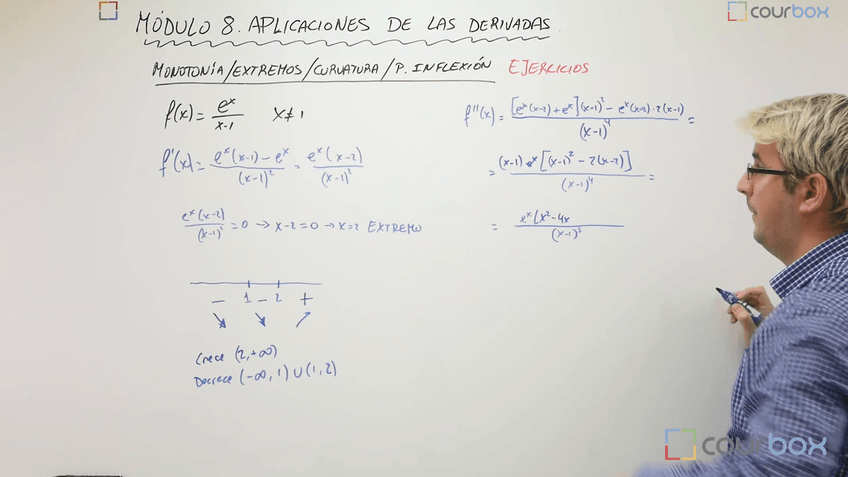 MÓDULO 8. APLICACIONES DE LAS DERIVADAS
courbox
MONOTONÍA/EXTREMOS/CURVATURA/P. INFLEXIÓN EJERCICIOS
f(x) = e^x/(x-1) x≠1
f'(x) = (e^x(x-1) - e^x)/(x-1)^2 = e^x(x-2)/(x-1)^2
e^x(x-2)/(x-1)^2 = 0 → x-2=0 → x=2 EXTREMO
- 1 - 2 +
↘ ↘ ↗
Crece (2,+∞)
Decrece (-∞,1)∪(1,2)
f''(x) = ([e^x(x-2)+e^x](x-1)^2 - e^x(x-2)·2(x-1))/(x-1)^4 =
= (x-1)e^x[(x-1)^2 - 2(x-2)]/(x-1)^4 =
= x^x(x^2-4x/(x-1)^3
courbox